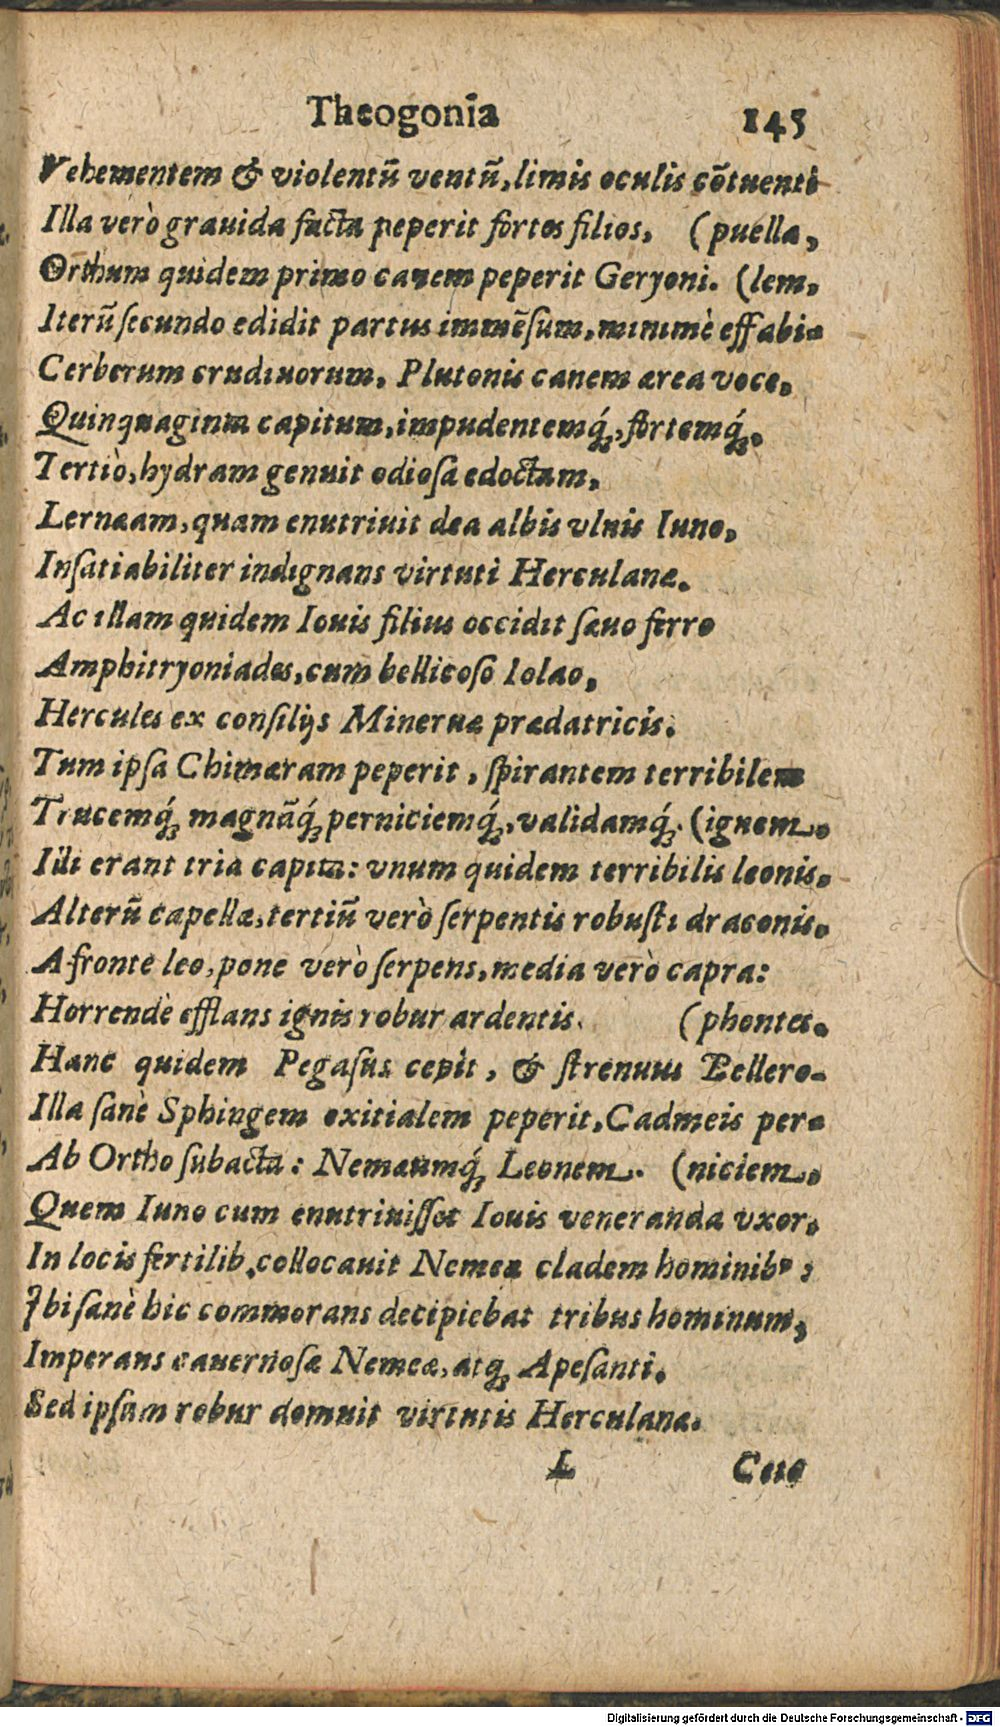 Theogonia 145
Vehementem & violentũ ventũ, limis oculis cõtuenti
Illa verò grauida facta peperit fortes filios, (puella,
Orthum quidem primo canem peperit Geryoni. (lem,
Iterũ secundo edidit partus immẽsum, minimè effabi-
Cerberum crudiuorum, Plutonis canem ærea voce,
Quinquaginta capitum, impudentemq́;, fortemq́;.
Tertiò, hydram genuit odiosa edoctam,
Lernæam, quam enutriuit dea albis vlnis Iuno,
Insatiabiliter indignans virtuti Herculanæ.
Ac illam quidem Iouis filius occidit sæuo ferro
Amphitryoniades, cum bellicoso Iolao,
Hercules ex consilijs Mineruæ prædatricis.
Tum ipsa Chimæram peperit, spirantem terribilem
Trucemq́; magnãq́; perniciemq́;, validamq́;. (ignem.
Illi erant tria capita: vnum quidem terribilis leonis.
Alterũ capellæ, tertiũ verò serpentis robusti draconis.
A fronte leo, pone verò serpens, media verò capra:
Horrendè efflans ignis robur ardentis. (phontes.
Hanc quidem Pegasus cepit, & strenuus Bellero-
Illa sanè Sphingem exitialem peperit, Cadmeis per-
Ab Ortho subacta: Nemæumq́; Leonem. (niciem.
Quem Iuno cum enutriuisset Iouis veneranda vxor,
In locis fertilib. collocauit Nemeæ cladem hominibꝰ:
Ibi sanè hic commorans decipiebat tribus hominum,
Imperans cauernosæ Nemeæ, atq; Apesanti.
Sed ipsum robur domuit virtutis Herculanæ.
L Ceto
Digitalisierung gefördert durch die Deutsche Forschungsgemeinschaft - DFG